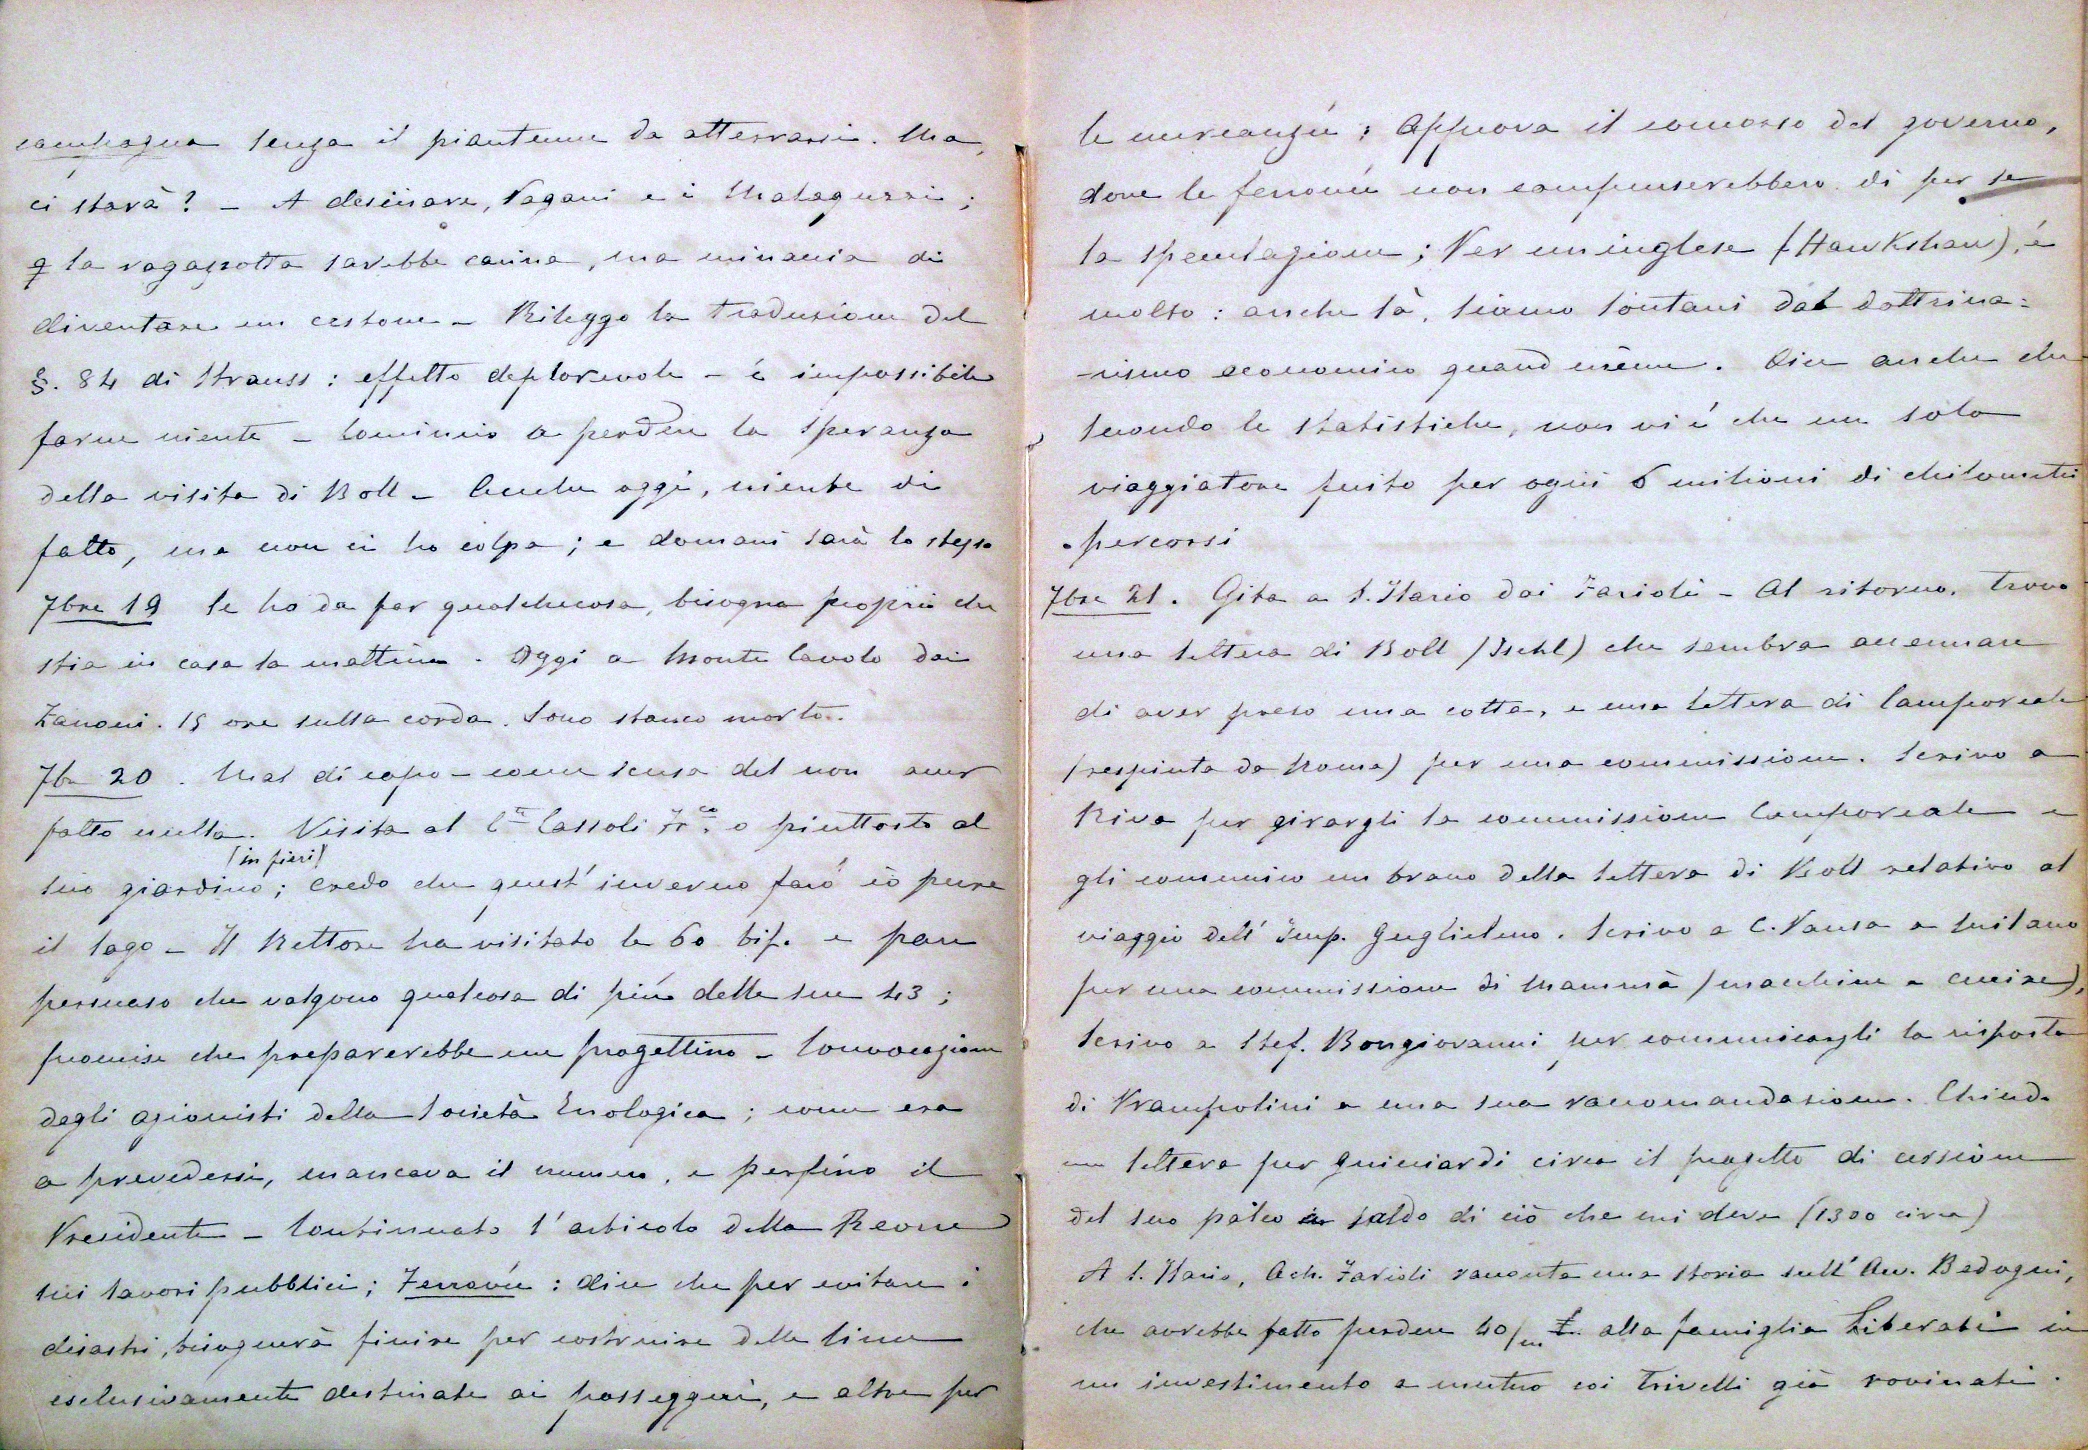 campagna senza il piantume da atterrarsi. Ma,
ci starà? – A desinare, Pagani e i Malaguzzi;
la ragazzotta sarebbe carina, ma minaccia di
diventare un cestone – Rileggo la traduzione del
§. 84 di Strauss: effetto deplorevole – é impossibile
farne niente – Comincio a perdere la speranza
della visita di Boll – Anche oggi, niente di
fatto, ma non ci ho colpa; e domani sarà lo stesso
7bre 19 Se ho da far qualchecosa, bisogna proprio che
stia in casa la mattina. Oggi a Monte Cavolo dai
Zanoni. 15 ore sulla corda. Sono stanco morto.
7br 20. Mal di capo – come scusa del non aver
fatto nulla. Visita al Cte Cassoli Frco. o piuttosto al
(in fieri)
suo giardino; credo che quest' inverno farò io pure
il lago – Il Rettore ha visitato le 60 bif. e pare
persuaso che valgono qualcosa di più delle sue 43;
promise che preparerebbe un progettino – Convocazione
degli azionisti della Società Enologica; come era
a prevedersi, mancava il numero, e perfino il
Presidente – Continuato l'articolo della Revue
sui lavori pubblici; Ferrovie: dice che per evitare i
disastri, bisognerà finire per costruire delle linee
esclusivamente destinate ai passeggeri, e altre per
le mercanzie; Approva il concorso del governo,
dove le ferrovie non compenserebbero di per se
la speculazione; Per un inglese (Hawkshaw), é
molto: anche là, siamo lontani dal dottrina=
-rismo economico quand même. Dice anche che
secondo le statistiche, non vi é che un solo
viaggiatore ferito per ogni 6 milioni di chilometri
percorsi
7bre 21. Gita a S. Ilario dai Farioli – Al ritorno, trovo
una lettera di Boll (Ischl) che sembra accennare
di aver preso una cotta, e una lettera di Camporeale
(respinta da Roma) per una commissione. Scrivo a
Riva per girargli la commissione Camporeale e
gli comunico un brano della lettera di Boll relativo al
viaggio dell' Imp. Guglielmo. Scrivo a C. Pansa a Milano
per una commissione di Mammà (macchine a cucire),
Scrivo a Stef. Bongiovanni per comunicargli la risposta
di Prampolini a una sua raccomandazione. Chiudo
una lettera per Guicciardi circa il progetto di cessione
del suo palco in saldo di ciò che mi deve (1300 circa)
A S. Ilario, Ach. Farioli racconta una storia sull' Avv. Bedogni,
che avrebbe fatto perdere 40/m £. alla famiglia Liberati in
un investimento a mutuo coi Trivelli già rovinati.